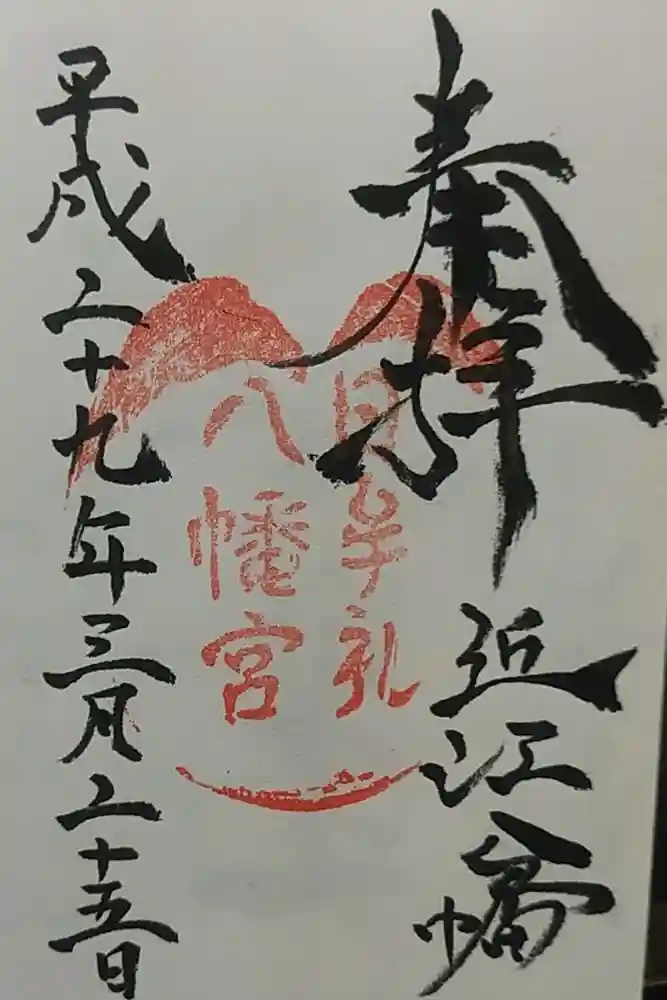 奉拝
近江八幡
日牟礼
八幡宮
平成二十九年三月二十五日